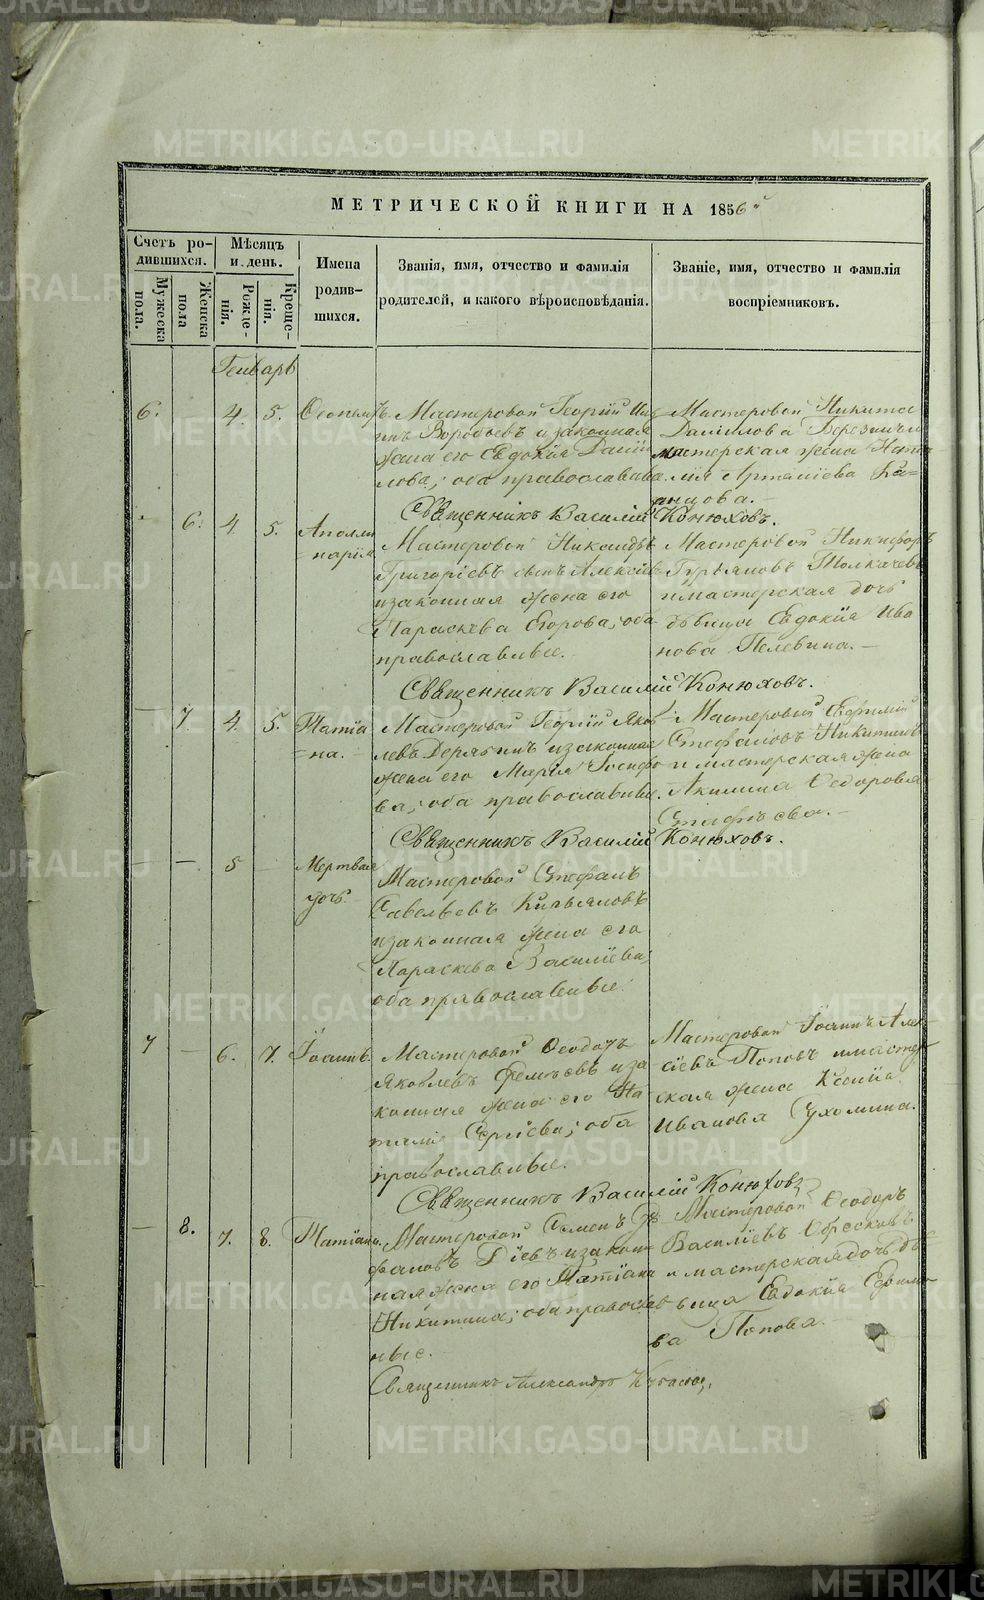 МЕТРИЧЕСКОЙ КНИГИ НА 1856й
Счетъ ро-
дившихся.
Мужеска
пола.
Женска
пола
Мѣсяцъ
и день.
Рожде-
нія.
Креще-
нія.
Имена
родив-
шихся.
Званія, имя, отчество и фамилія
родителей, и какого вѣроисповѣданія.
Званіе, имя, отчество и фамилія
воспріемниковъ.
Генварь
6. 4. 5. Ѳеопемптъ.
Мастеровой Георгій
Воробьевъ и законная
жена его Евдокія Данії
лова, оба православные.
Мастеровой Никита
Даниловъ
мастерская жена Ната
лия Артеміева Ка-
занцова.
Священникъ Василій Конюховъ.
- 6. 4. 5. Аполли
нарія
Мастеровой Никандръ
Григоріевъ сынъ Алексѣевъ
и законная жена его
Параскева Егорова, оба
православные.
Мастеровой Никифоръ
Гурьяновъ Толкачевъ
и мастерская дочь
дѣвица Евдокія Ива
нова Пелевина.
Священникъ Василій Конюховъ.
- 7 4. 5. Татіа
=на.
Мастеровой Георгій Яков
левъ Дерябинъ и законная
жена его Марія Іосифо
ва, оба православные.
Мастеровый Ефимій
Стефановъ Никитинъ
и мастерская жена
Акилина Ѳедорова
Священникъ Василій Конюховъ.
- - 5 - Мертвая
дочь.
Мастеровой Стефанъ
Савельевъ Кипріяновъ
и законная жена его
Параскева Василіева,
оба православные.
7 - 6. 7. Іоаннъ.
Мастеровой Ѳеодотъ
Яковлевъ и за
конная жена его На
талія Сергіева, оба
православные.
Мастеровой Іоаннъ Алек
сіевъ Поповъ и мастер-
ская жена Ксенія
Иванова Сухонина.
Священникъ Василій Конюховъ
- 8. 7. 8. Татіана.
Мастеровой Семенъ
и закон-
ная жена его Татіана
Никитина, оба православ
ные.
Мастеровой Ѳеодоръ
Василіевъ
и мастерская дочь дѣ
вица Евдокія Ефимо
ва Попова.
Священникъ Александръ
METRIKI.GASO-URAL.RU